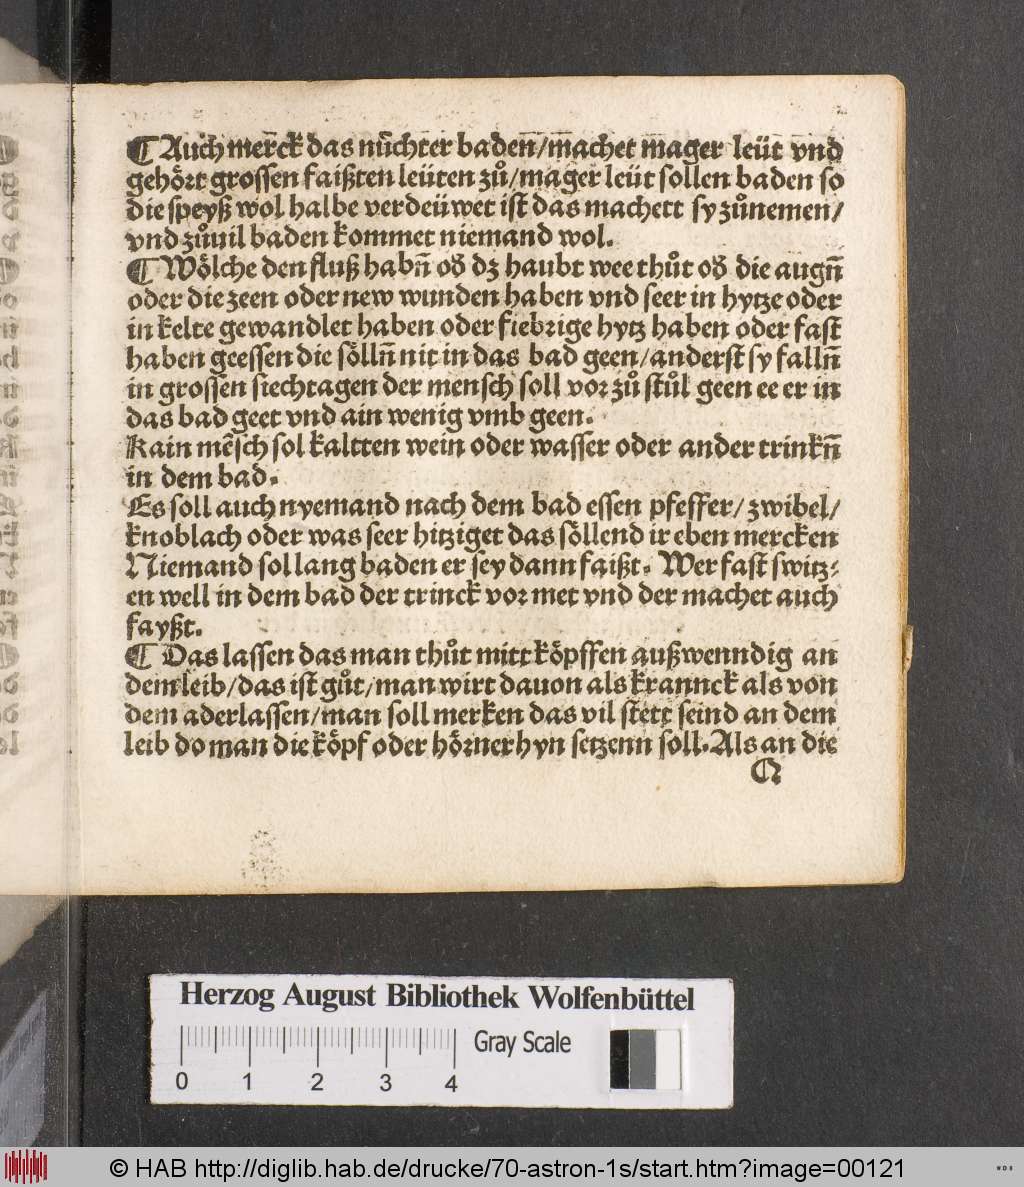 ¶ Auch merck das nůchter baden/machet mager leüt vnd
gehört grossen faißten leüten zů/mager leüt sollen baden so
die speyß wol halbe verdeüwet ist das machett sy zůnemen/
vnd zůuil baden kommet niemand wol.
¶ Wölche den fluß habn̄ od̕ dz haubt wee thůt od̕ die augn̄
oder die zeen oder new wunden haben vnd seer in hytze oder
in kelte gewandlet haben oder fiebrige hytz haben oder fast
haben geessen die sölln̄ nit in das bad geen/anderst sy falln̄
in grossen siechtagen der mensch soll vor zů stůl geen ee er in
das bad geet vnd ain wenig vmb geen.
Kain mēsch sol kaltten wein oder wasser oder ander trinkn̄
in dem bad.
Es soll auch nyemand nach dem bad essen pfeffer/zwibel/
knoblach oder was seer hitziget das söllend ir eben mercken
Niemand sol lang baden er sey dann faißt. Wer fast switz⸗
en well in dem bad der trinck vor met vnd der machet auch
fayßt.
¶ Das lassen das man thůt mitt köpffen außwenndig an
dem leib/das ist gůt/man wirt dauon als kranck als von
dem aderlassen/man soll merken das vil stett seind an dem
leib do man die köpf oder hörner hyn setzenn soll. Als an die
Herzog August Bibliothek Wolfenbüttel
Gray Scale
0 1 2 3 4
© HAB http://diglib.hab.de/drucke/70-astron-1s/start.htm?image=00121